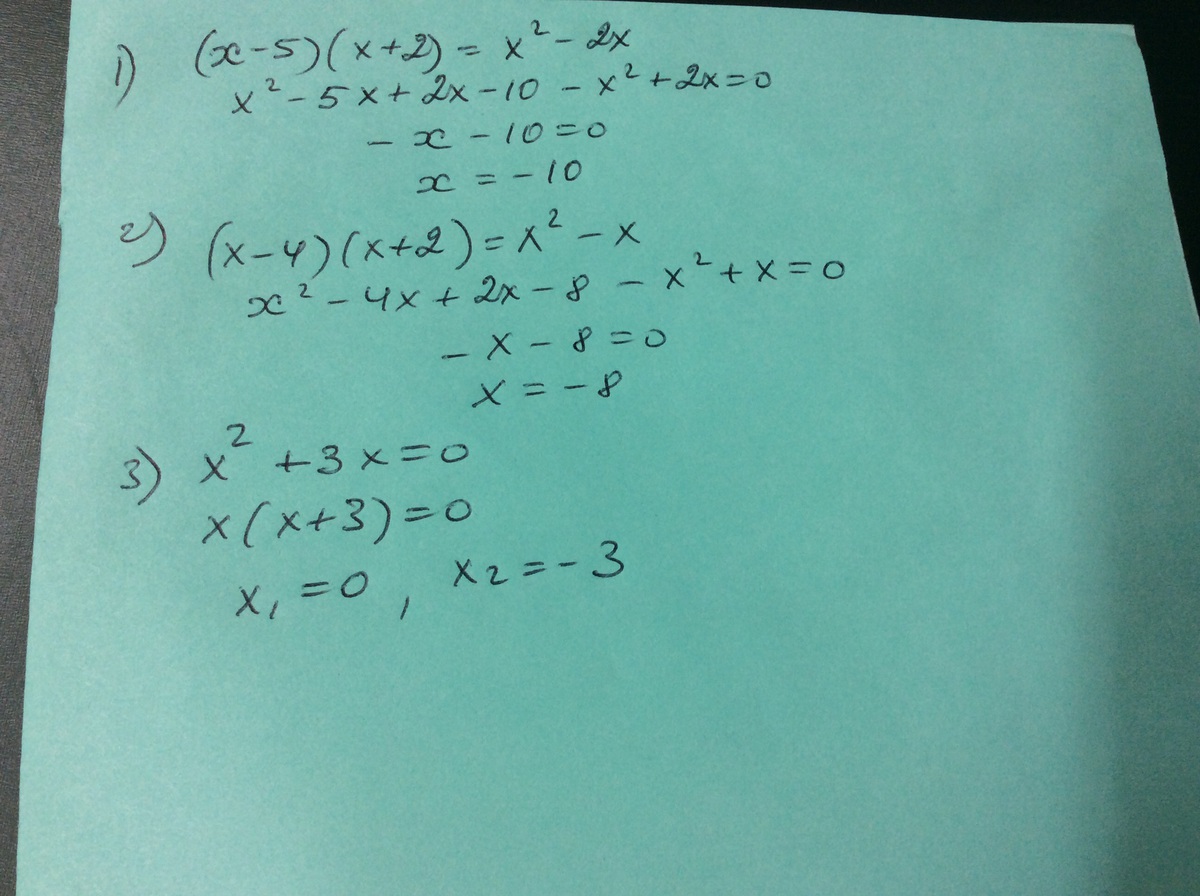 1) (x-5)(x+2) = x² - 2x
x² - 5x + 2x - 10 - x² + 2x = 0
- x - 10 = 0
x = - 10
2) (x-4)(x+2) = x² - x
x² - 4x + 2x - 8 - x² + x = 0
- x - 8 = 0
x = - 8
3) x² + 3x = 0
x(x+3) = 0
x₁ = 0, x₂ = - 3